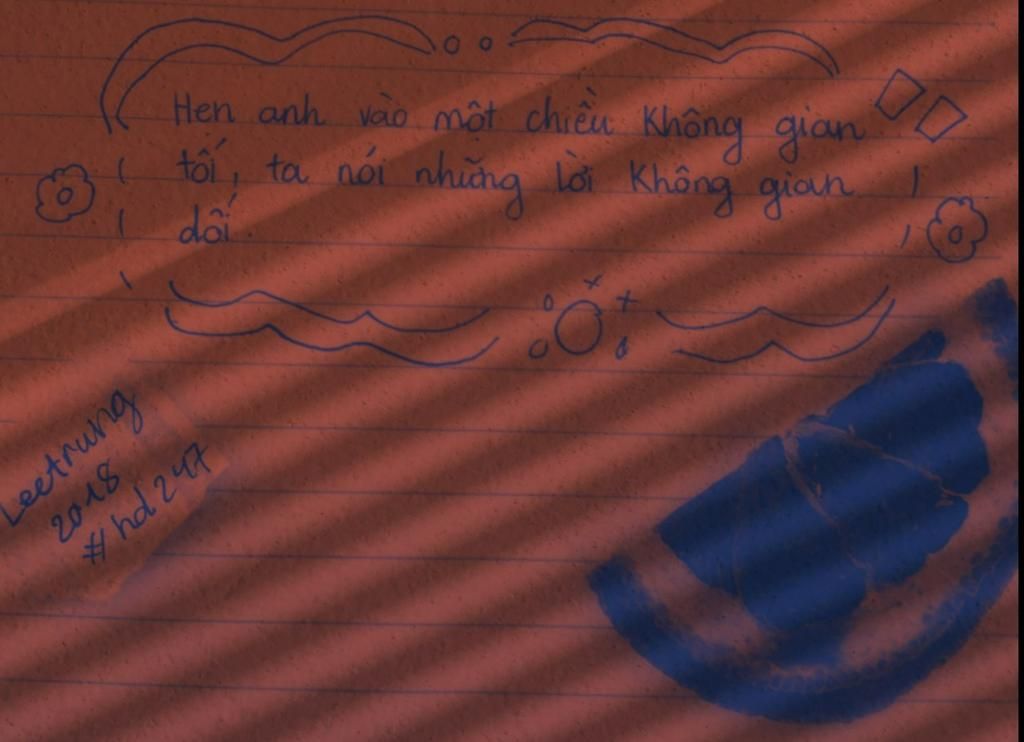 Hen anh vào một chiều Không gian
tối, ta nói những lời Không gian
dối
Leetrung
2018
#hd247